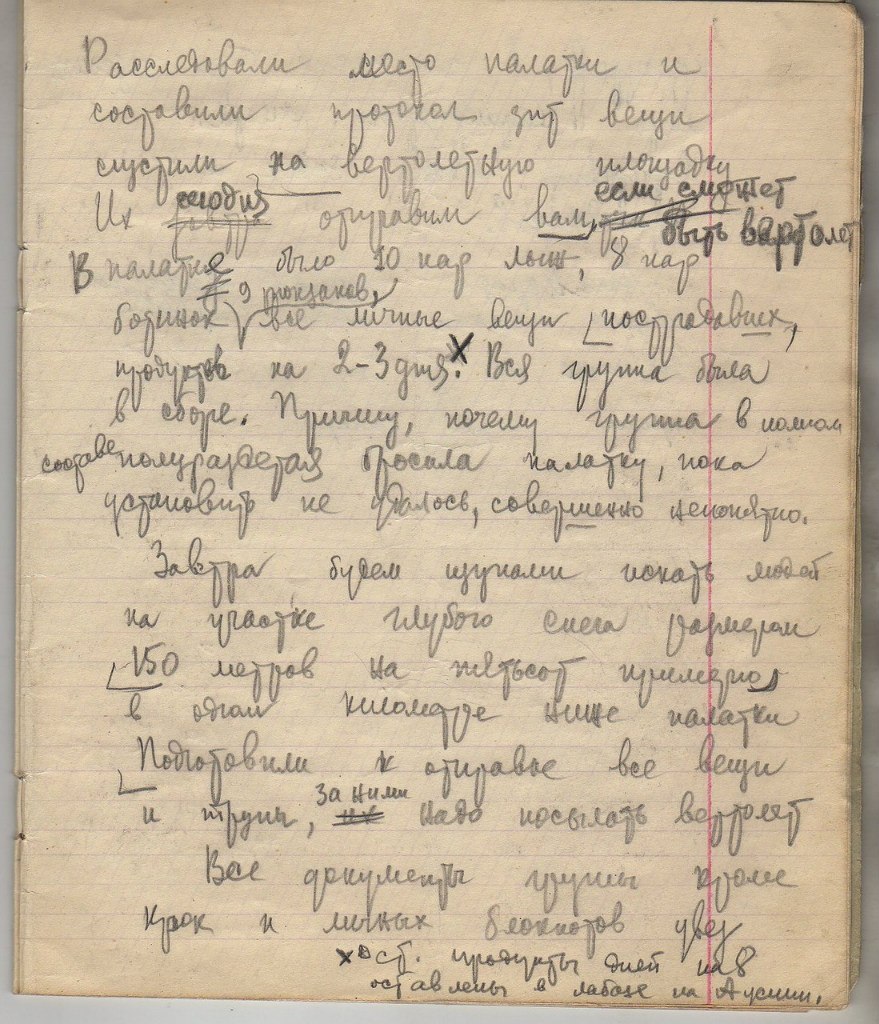 Расследовали место палатки и
составили протокол зпт вещи
спустили на вертолетную площадку
Их сегодня отправим вам, если сможет
быть вертолет
В палатке было 10 пар лыж, 8 пар
9 рюкзаков,
ботинок все личные вещи пострадавших,
продуктов на 2-3 дня. х Вся группа была
в сборе. Причину, почему группа в полном
составе полураздетая бросила палатку, пока
установить не удалось, совершенно непонятно.
Завтра будем щупами искать людей
на участке глубого снега размером
150 метров на пятьсот примерно
в одном километре ниже палатки
Подготовили к отправке все вещи
и трупы, за ними надо посылать вертолет
Все документы группы кроме
крок и личных блокнотов увез
х ост. продукты дней на 8
оставлены в лабазе на Ауспии.